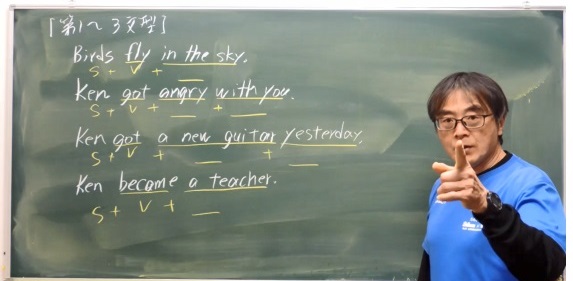 [第1～3文型]
Birds fly in the sky.
S + V + __
Ken got angry with you.
S + V + __ + __
Ken got a new guitar yesterday.
S + V + __ + __
Ken became a teacher.
S + V + __